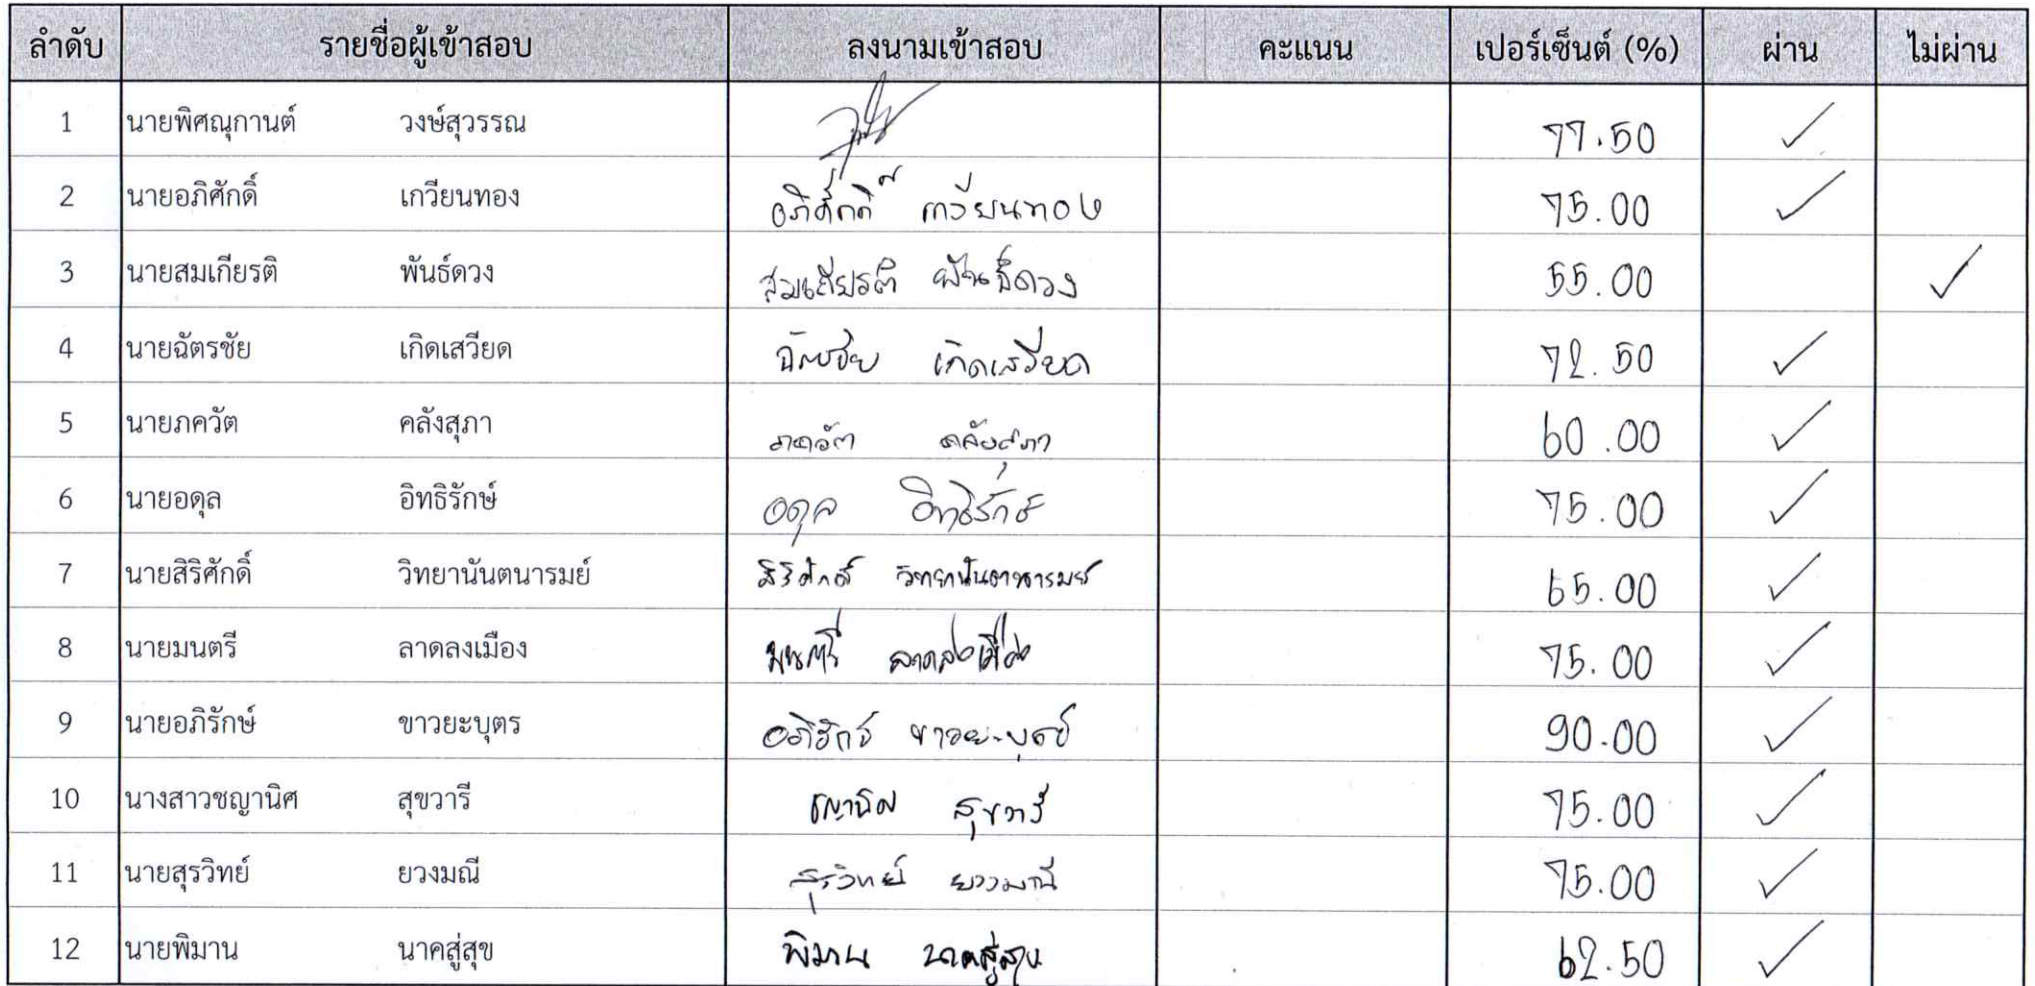 ลำดับ รายชื่อผู้เข้าสอบ ลงนามเข้าสอบ คะแนน เปอร์เซ็นต์ (%) ผ่าน ไม่ผ่าน
1 นายพิศณุกานต์ วงษ์สุวรรณ 77.50 ✓
2 นายอภิศักดิ์ เกวียนทอง อภิศักดิ์ เกวียนทอง 75.00 ✓
3 นายสมเกียรติ พันธ์ดวง สมเกียรติ พันธ์ดวง 55.00 ✓
4 นายฉัตรชัย เกิดเสวียด ฉัตรชัย เกิดเสวียด 72.50 ✓
5 นายภควัต คลังสุภา ภควัต คลังสุภา 60.00 ✓
6 นายอดุล อิทธิรักษ์ อดุล อิทธิรักษ์ 75.00 ✓
7 นายสิริศักดิ์ วิทยานันตนารมย์ สิริศักดิ์ วิทยานันตนารมย์ 65.00 ✓
8 นายมนตรี ลาดลงเมือง มนตรี ลาดลงเมือง 75.00 ✓
9 นายอภิรักษ์ ขาวยะบุตร อภิรักษ์ ขาวยะบุตร 90.00 ✓
10 นางสาวชญานิศ สุขวารี ชญานิศ สุขวารี 75.00 ✓
11 นายสุรวิทย์ ยวงมณี สุรวิทย์ ยวงมณี 75.00 ✓
12 นายพิมาน นาคสู่สุข พิมาน นาคสู่สุข 62.50 ✓